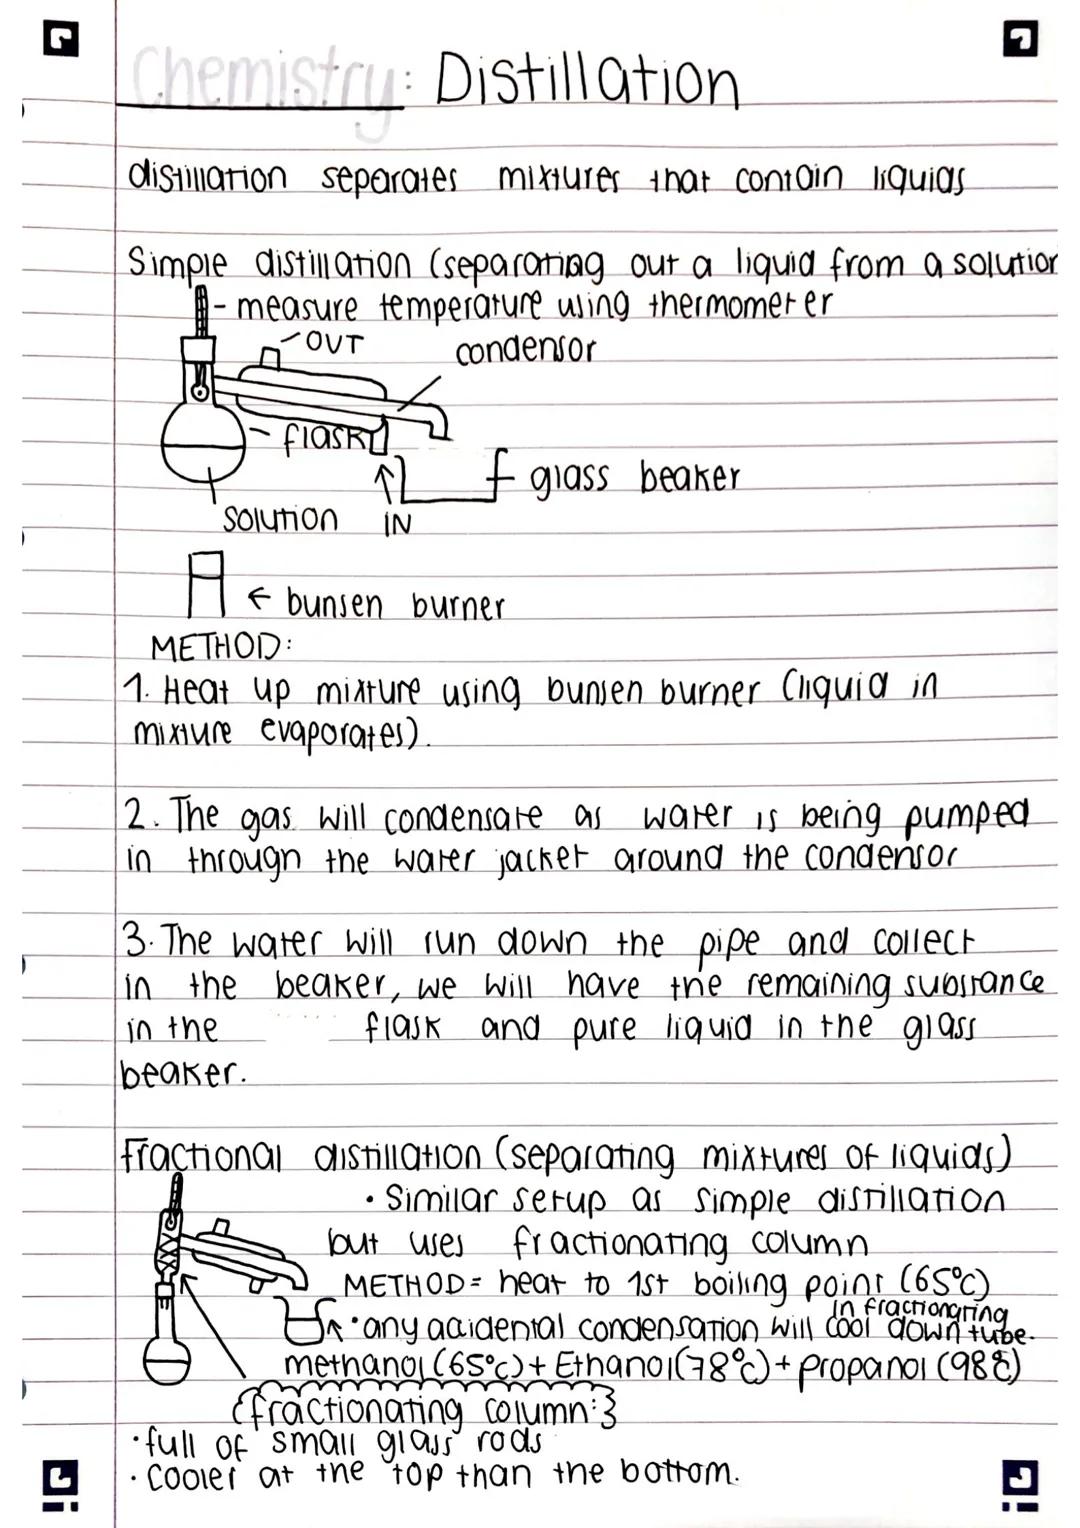 Chemistry: Distillation
distillation separates mixtures that contain liquids
Simple distillation (separating out a liquid from a solution
- measure temperature using thermometer
OUT
condensor
- flask
glass beaker
solution
IN
← bunsen burner
METHOD:
1. Heat up mixture using bunsen burner (liquid in
mixture evaporates).
2. The gas will condensate as water is being pumped
in through the water jacket around the condensor
3. The water will run down the pipe and collect
in the beaker, we will have the remaining substance
in the flask and pure liquid in the glass
beaker.
Fractional distillation (separating mixtures of liquids)
• Similar setup as simple distillation
but uses fractionating column
METHOD= heat to 1st boiling point (65°C)
• any accidental condensation will cool down in fractionating tube.
methanol (65°C) + Ethanol (78°C) + propanol (98°C)
{fractionating column:}
• full of small glass rods
• cooler at the top than the bottom.